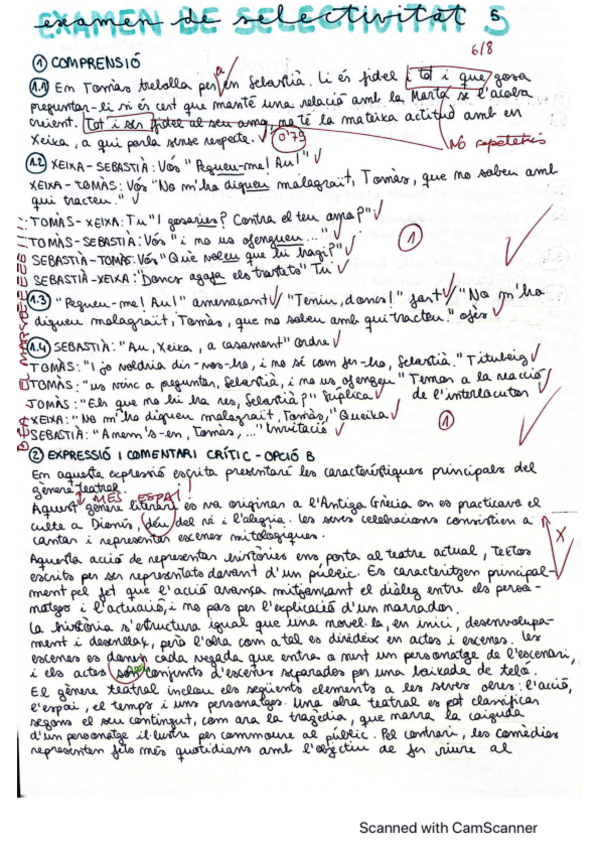 EXAMEN DE SELECTIVITAT 5
examen de selectivitat 5
6/8
① COMPRENSIÓ
1.1 En Tomàs treballa per a en Sebastià. Li és fidel i tot i que gosa
preguntar-li si és cert que manté una relació amb la Marta se l'acaba
creient. Tot i ser fidel al seu amo, no té la mateixa actitud amb en
Xeixa, a qui parla sense respecte. 0'75
No repeteixis
1.2 XEIXA-SEBASTIÀ: Vós "Pegueu-me! Au!"
XEIXA-TOMÀS: Vós "No m'ho digueu malagraït, Tomàs, que no sabeu amb
qui tracteu."
TOMÀS-XEIXA: Tu "I gosaries? Contra el teu amo?"
TOMÀS-SEBASTIÀ: Vós "i no us ofengueu..."
1
SEBASTIÀ-TOMÀS: Vós "Què voleu que hi hagi?"
SEBASTIÀ-XEIXA: "Doncs agafa els trastets" Tu
1.3 "Pegueu-me! Au!" amenaçant "Teniu, doncs!" fart "No m'ho
digueu malagraït, Tomàs, que no sabeu amb qui tracteu." ofès
1.4 SEBASTIÀ: "Au, Xeixa, a casament" Ordre
TOMÀS: "I jo voldria dir-vos-ho, i no sé com fer-ho, Sebastià." Titubeig
TOMÀS: "us vinc a preguntar, Sebastià, i no us ofengeu" Temor a la reacció
de l'interlocutor
TOMÀS: "Els que no hi ha res, Sebastià?" Súplica
XEIXA: "No m'ho digueu malagraït, Tomàs," Queixa
1
SEBASTIÀ: "Anem's-en, Tomàs,..." Invitació
② EXPRESSIÓ I COMENTARI CRÍTIC - OPCIÓ B
En aquesta expressió escrita presentaré les característiques principals del
gènere teatral.
MÉS ESPAI
Aquest gènere literari es va originar a l'Antiga Grècia on es practicava el
culte a Dionís, déu del vi i l'alegria. Les seves celebracions consistien a
cantar i representar escenes mitològiques.
X
Aquesta acció de representar històries ens porta al teatre actual, textos
escrits per ser representats davant d'un públic. Es caracteritzen principal-
ment pel fet que l'acció avança mitjançant el diàleg entre els perso-
natges i l'actuació, i no pas per l'explicació d'un narrador.
La història s'estructura igual que una novel·la, en inici, desenvolupa-
ment i desenllaç, però l'obra com a tal es divideix en actes i escenes. Les
escenes es donen cada vegada que entra o surt un personatge de l'escenari,
i els actes són conjunts d'escenes separades per una baixada de teló.
El gènere teatral inclou els següents elements a les seves obres: l'acció,
l'espai, el temps i uns personatges. Una obra teatral es pot classificar
segons el seu contingut, com ara la tragèdia, que narra la caiguda
d'un personatge il·lustre per commoure al públic. Pel contrari, les comèdies
representen fets més quotidians amb l'objectiu de fer riure al
Scanned with CamScanner